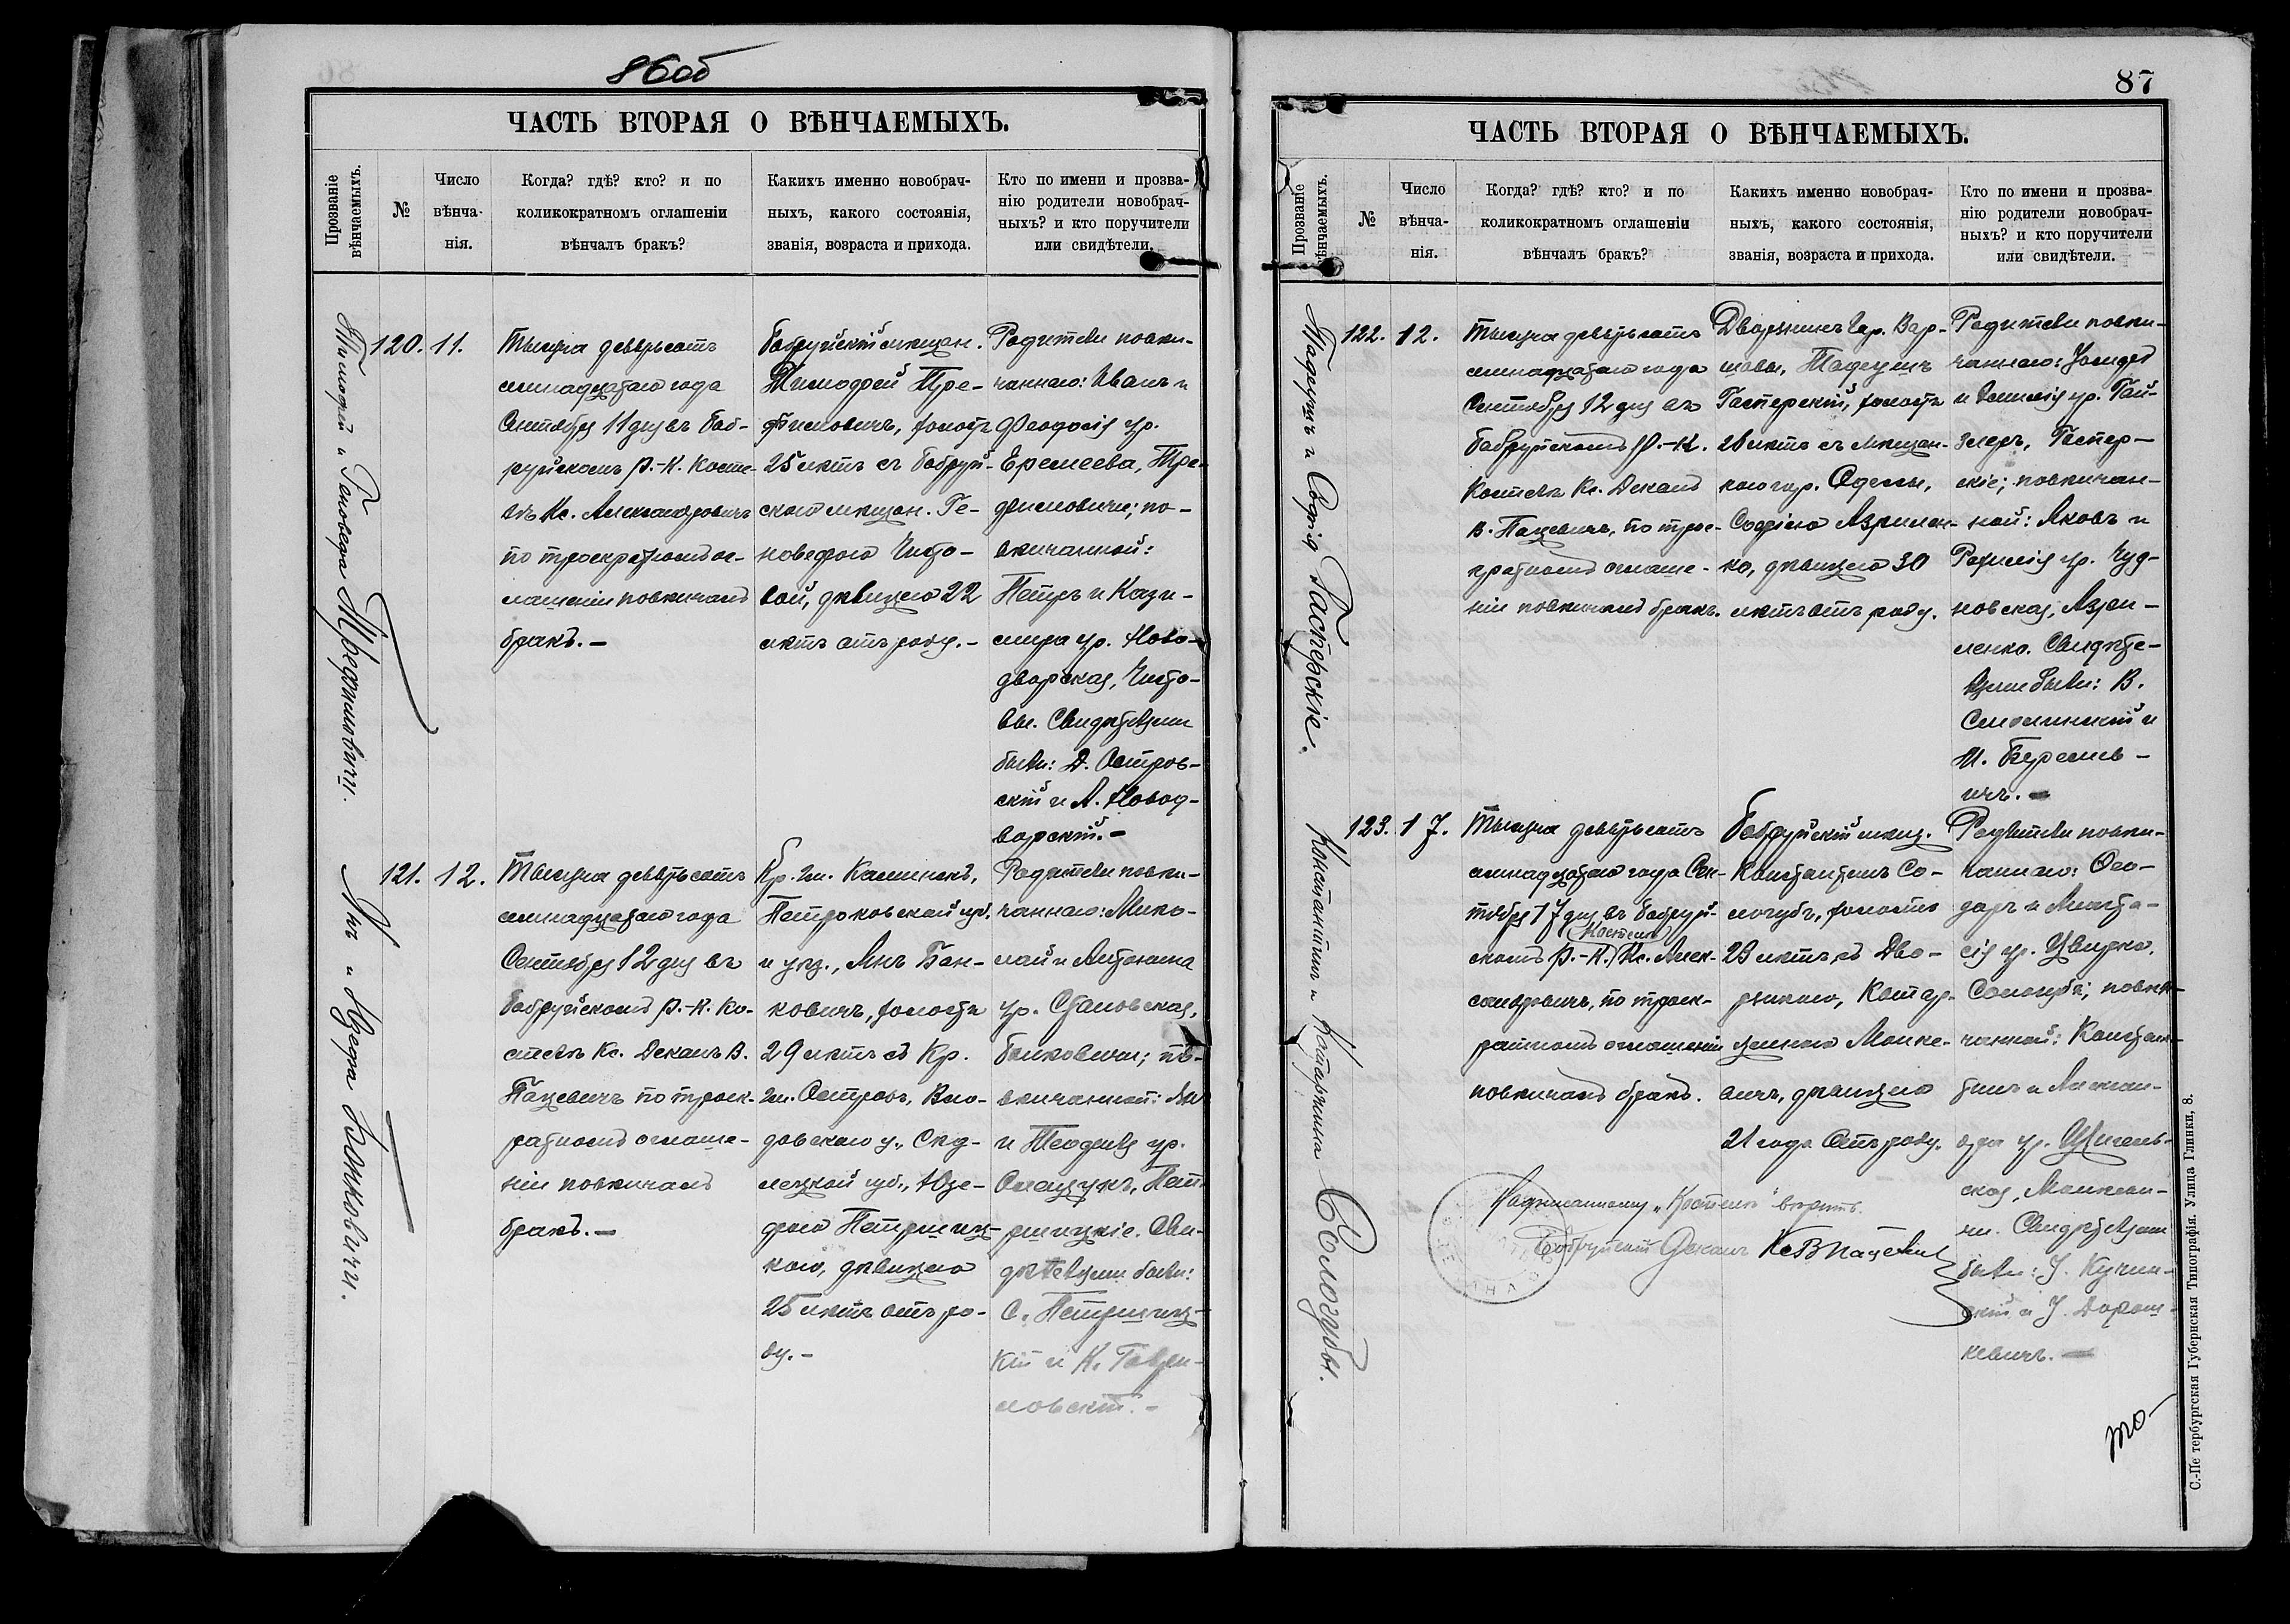 86об
ЧАСТЬ ВТОРАЯ О ВѢНЧАЕМЫХЪ.
Прозваніе вѣнчаемыхъ.
№
Число
вѣнча-
нія.
Когда? гдѣ? кто? и по
коликократномъ оглашеніи
вѣнчалъ бракъ?
Какихъ именно новобрач-
ныхъ, какого состоянія,
званія, возраста и прихода.
Кто по имени и прозва-
нію родители новобрач-
ныхъ? и кто поручители
или свидѣтели.
Тимофей и Геновефа Трефимовичи.
120.
11.
Тысяча девятьсотъ
семнадцатаго года
Сентября 11 дня въ Боб-
руйскомъ Р.-К. Косте-
лѣ Кс. Александровичъ
по троекратномъ ог-
лашеніи повѣнчалъ
бракъ.-
Бобруйскій мѣщан.
Тимофей Тре-
фимовичъ, холостъ
25 лѣтъ съ Бобруй-
скою мѣщан. Ге-
новефою Чисто-
вой, дѣвицею 22
лѣтъ отъ роду.-
Родители повѣн-
чаннаго: Иванъ и
Феодосія ур.
Еремеева, Тре-
фимовичи; по-
вѣнчанной:
Петръ и Кази-
мира ур. Ново-
дворская, Чисто-
вы. Свидѣтелями
были: Д. Остров-
скій и А. Новод-
ворскій.-
Янъ и Юзефа Банковичи.
121.
12.
Тысяча девятьсотъ
семнадцатаго года
Сентября 12 дня въ
Бобруйскомъ Р.-К. Ко-
стелѣ Кс. Деканъ В.
Пацевичъ по троек-
ратномъ оглаше-
ніи повѣнчалъ
бракъ.-
Кр. гм. Каминскъ,
Петроковской губ.
и уѣз., Янъ Бан-
ковичъ, холостъ
29 лѣтъ съ Кр.
гм. Островъ, Вло-
давскаго у., Сѣд-
лецкой губ., Юзе-
фою Петришиц-
кою, дѣвицею
25 лѣтъ отъ ро-
ду.-
Родители повѣн-
чаннаго: Мико-
лай и Антонина
ур. Становская,
Банковичи; по-
вѣнчанной: Ян
и Теофиля ур.
Омещукъ, Пет-
ришицкіе. Сви-
дѣтелями были:
С. Петришиц-
кій и К. Гаври-
ловскій.-
87
ЧАСТЬ ВТОРАЯ О ВѢНЧАЕМЫХЪ.
Прозваніе вѣнчаемыхъ.
№
Число
вѣнча-
нія.
Когда? гдѣ? кто? и по
коликократномъ оглашеніи
вѣнчалъ бракъ?
Какихъ именно новобрач-
ныхъ, какого состоянія,
званія, возраста и прихода.
Кто по имени и прозва-
нію родители новобрач-
ныхъ? и кто поручители
или свидѣтели.
Тадеушъ и Софія Гасперскіе.
122.
12.
Тысяча девятьсотъ
семнадцатаго года
Сентября 12 дня въ
Бобруйскомъ Р.-К.
Костелѣ Кс. Деканъ
В. Пацевичъ, по трое-
кратномъ оглаше-
ніи повѣнчалъ бракъ.
Дворянинъ гор. Вар-
шавы, Тадеушъ
Гасперскій, холостъ
26 лѣтъ съ мѣщан-
кою гор. Одессы,
Софіею Азрилен-
ко, дѣвицею 30
лѣтъ отъ роду.
Родители повѣн-
чаннаго: Іосифъ
и Эмилія ур. Гай-
злеръ, Гаспер-
скіе; повѣнчан-
ной: Яковъ и
Рахилія ур. Чуд-
новская, Азри-
ленко. Свидѣте-
лями были: В.
Смолинскій и
И. Беремов-
ичъ.-
Константинъ и Катаржина Сологубы.
123.
17.
Тысяча девятьсотъ
семнадцатаго года Сен-
тября 17 дня въ Бобруй-
скомъ Р.-К. (Костелѣ) Кс. Алек-
сандровичъ, по троек-
ратномъ оглашеніи
повѣнчалъ бракъ.
Бобруйскій мѣщ.
Константинъ Со-
логубъ, холостъ
23 лѣтъ, съ Дво-
рянкою, Катар-
жиною Манке-
вичъ, дѣвицею
21 года отъ роду.
Родители повѣн-
чаннаго: Фео-
доръ и Анаста-
сія ур. Цвирко,
Сологубы; повѣн-
чанной: Констан-
тинъ и Алексан-
дра ур. Щигель-
ская, Манкеви-
чи. Свидѣтелями
были: І. Кучин-
скій и І. Дорош-
кевичъ.-
Надписанному „Костелъ" вѣрить.
Бобруйскій Деканъ Кс В Пацевичъ
то-
С.-Петербургская Губернская Типографія. Улица Глинки, 8.